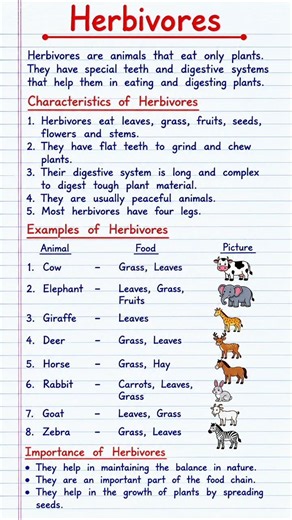 Herbivores
Herbivores are animals that eat only plants.
They have special teeth and digestive systems
that help them in eating and digesting plants.
Characteristics of Herbivores
1. Herbivores eat leaves, grass, fruits, seeds,
flowers and stems.
2. They have flat teeth to grind and chew
plants.
3. Their digestive system is long and complex
to digest tough plant material.
4. They are usually peaceful animals.
5. Most herbivores have four legs.
Examples of Herbivores
Animal Food Picture
1. Cow – Grass, Leaves
2. Elephant – Leaves, Grass,
Fruits
3. Giraffe – Leaves
4. Deer – Grass, Leaves
5. Horse – Grass, Hay
6. Rabbit – Carrots, Leaves,
Grass
7. Goat – Leaves, Grass
8. Zebra – Grass, Leaves
Importance of Herbivores
• They help in maintaining the balance in nature.
• They are an important part of the food chain.
• They help in the growth of plants by spreading
seeds.